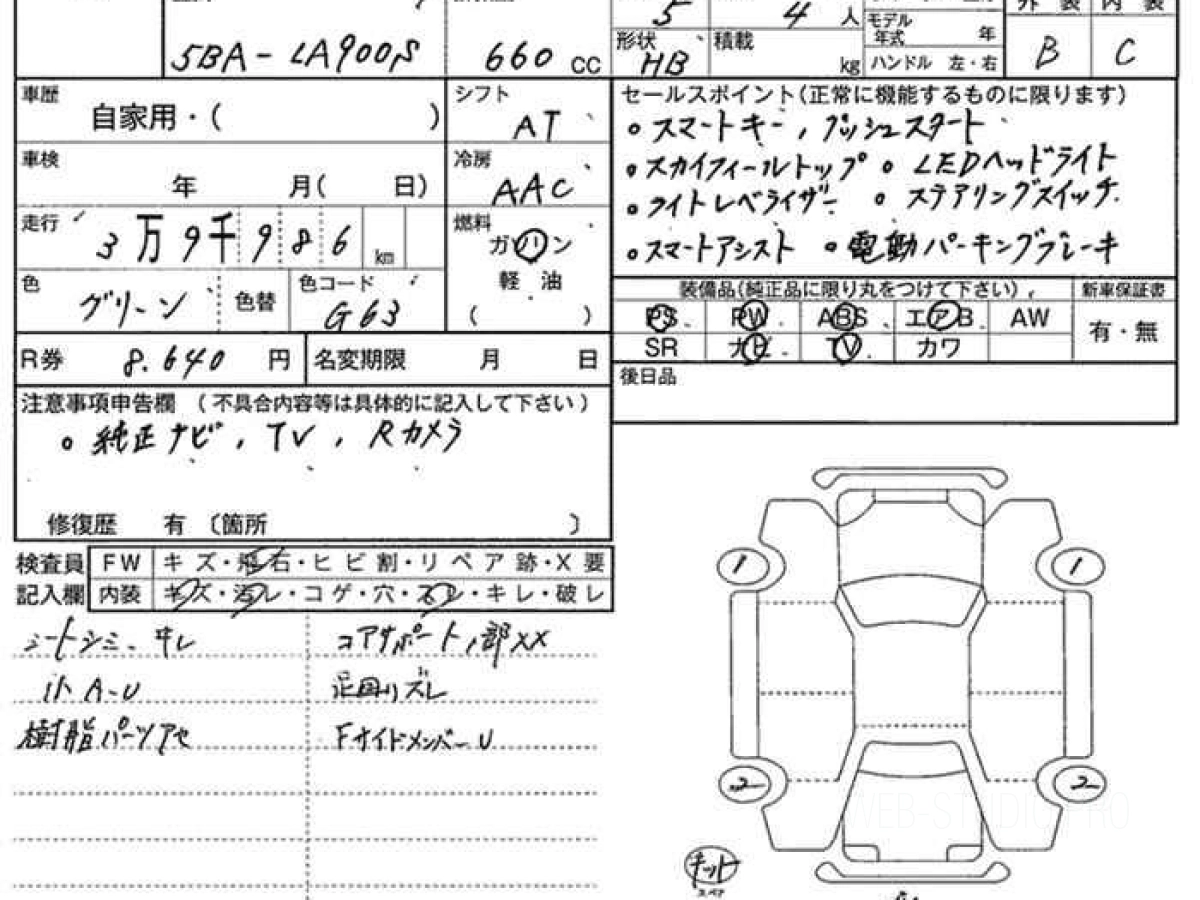 5 4 人
外装 内装
モデル年式 年
5BA-LA900S 660 CC
形状 HB 積載 kg
ハンドル 左・右
B C
車歴 自家用・( )
シフト AT
セールスポイント(正常に機能するものに限ります)
。スマートキー,プッシュスタート
車検 年 月( 日)
冷房 AAC
。スカイフィールトップ 。LEDヘッドライト
。ライトレベライザー 。ステアリングスイッチ
走行 3万9千986km
燃料 ガソリン
軽油
( )
。スマートアシスト 。電動パーキングブレーキ
色 グリーン 色替 色コード G63
装備品(純正品に限り丸をつけて下さい) 新車保証書
PS PW ABS エアB AW 有・無
SR ナビ TV カワ
R券 8.640円 名変期限 月 日
後日品
注意事項申告欄 (不具合内容等は具体的に記入して下さい)
。純正ナビ,TV,Rカメラ
修復歴 有〔箇所 〕
検査員 FW キズ・飛石・ヒビ割・リペア跡・X要
記入欄 内装 キズ・汚レ・コゲ・穴・スレ・キレ・破レ
シートシミ、キレ コアサポート,部XX
小A-U 足回りズレ
樹脂パーツアセ FサイドメンバーU
1 1
2 2
キット
スペア
WEB-STUDIO PRO